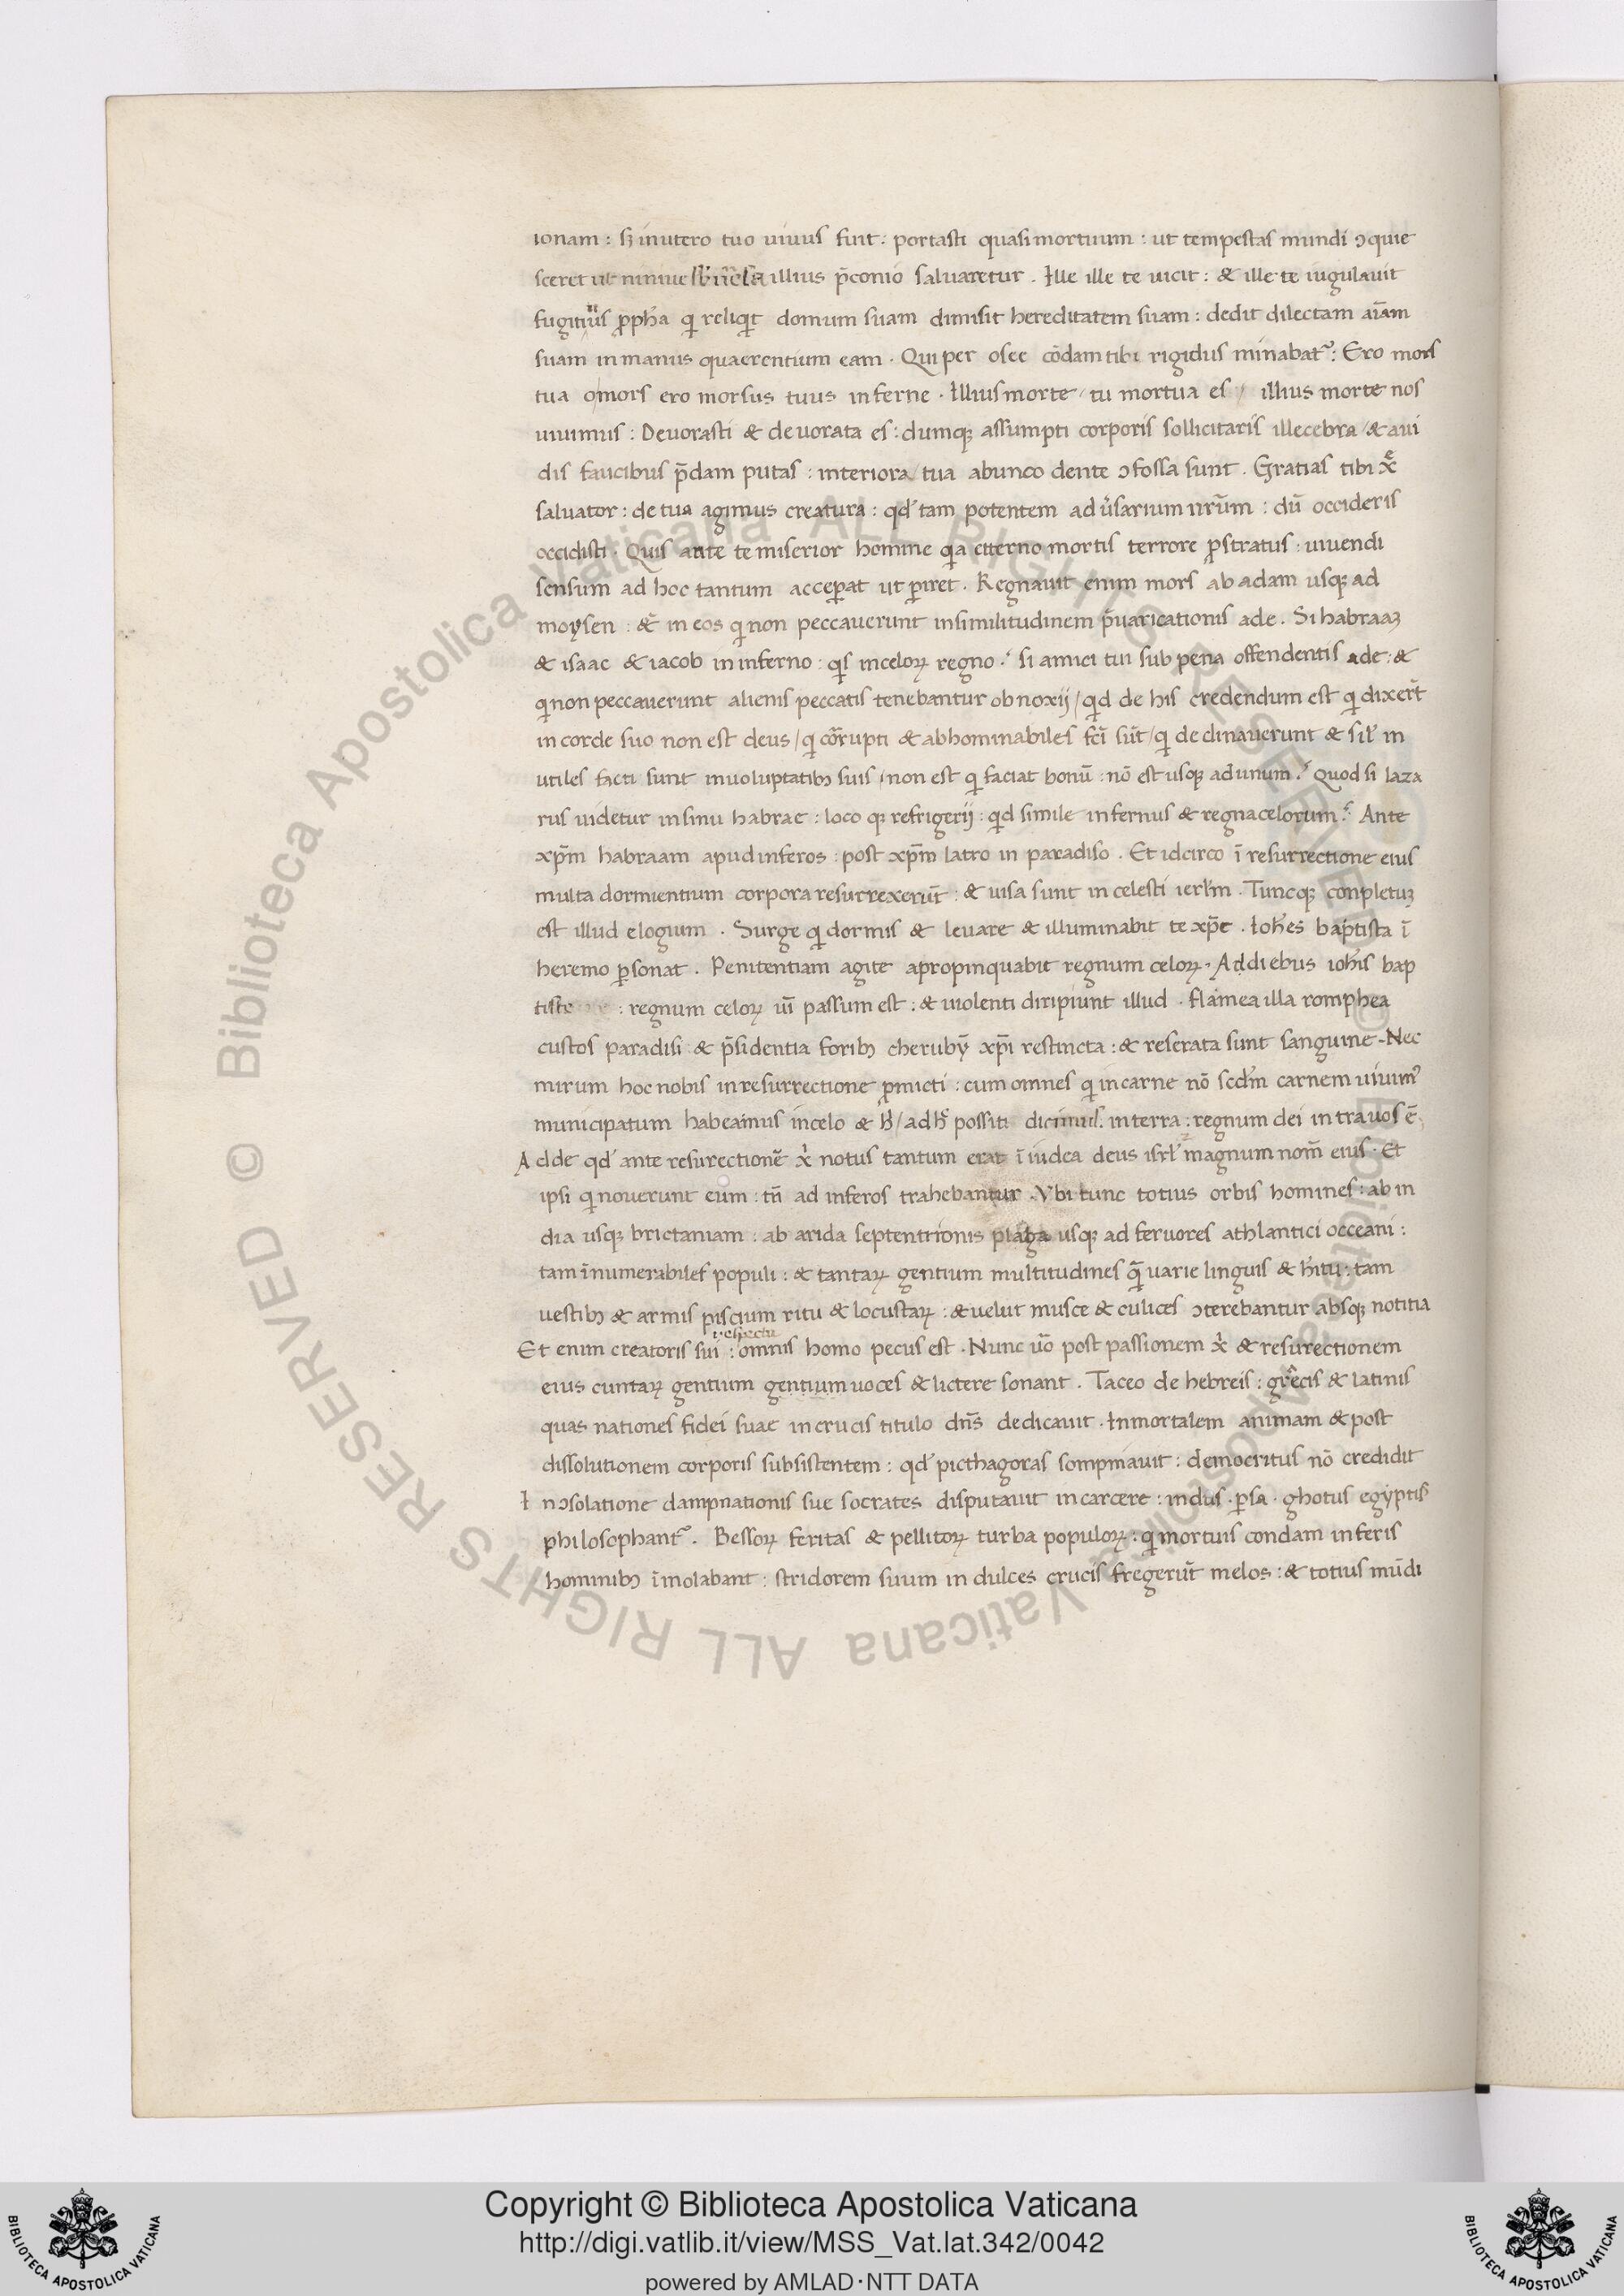 ionam : sꝫ inutero tuo uiuus fuit : portasti quasi mortuum : ut tempestas mundi ɔquie
sceret ut niniue illius p̄conio saluaretur . Ille ille te uicit : & ille te iugulauit
fugitiuus ꝓpha qi reliqit domum suam dimisit hereditatem suam : dedit dilectam aīam
suam in manus quaerentium eam . Qui per osee cōdam tibi rigidus minabat᷑ : Ero mors
tua o mors ero morsus tuus inferne . Illius morte / tu mortua es / illius morte nos
uiuimus : Deuorasti & deuorata es : dumqꝫ assumpti corporis sollicitaris illecebra / & aui
dis faucibus p̄dam putas : interiora / tua abunco dente ɔfossa sunt . Gratias tibi xp̄e
saluator : de tua agimus creatura : qd' tam potentem adu'sarium nr̄um : dū occideris
occidisti . Quis ante te miserior homine qa etterno mortis terrore ꝓstratus : uiuendi
sensum ad hoc tantum acceꝑat ut ꝑiret . Regnauit enim mors ab adam usqꝫ ad
moysen : & in eos qi non peccauerunt insimilitudinem p̄uaricationis ade . Si habraaꝫ
& isaac & iacob in inferno : qis incelorꝝ regno ? si amici tui sub pena offendentis ade : &
qi non peccauerunt alienis peccatis tenebantur obnoxij / qid de his credendum est qi dixer̄t
in corde suo non est deus / qi corrupti & abhominabiles fc̄i sūt / qi declinauerunt & sil' in
utiles facti sunt inuoluptatibꝫ suis / non est qi faciat bonū : nō est usqꝫ adunum ? Quod si laza
rus uidetur insinu habrae : loco qꝫ refrigerij : qid simile infernus & regna celorum ? Ante
xp̄m habraam apud inferos : post xp̄m latro in paradiso . Et idcirco ī resurrectione eius
multa dormientium corpora resurrexerūt : & uisa sunt in celesti ierl'm . Tuncqꝫ conpletuꝫ
est illud elogium . Surge qi dormis & leuare & illuminabit te xp̄c . Ioh'es baptista ī
heremo ꝑsonat . Penitentiam agite apropinquabit regnum celorꝝ . Addiebus ioh'is bap
tiste : regnum celorꝝ uī passum est : & uiolenti diripiunt illud . flāmea illa romphea
custos paradisi & p̄sidentia foribꝫ cherubȳ xp̄i restincta : & reserata sunt sanguine . Nec
mirum hoc nobis inresurrectione ꝓmicti : cum omnes qi in carne nō scd'm carnem uiuim᷒
municipatum habeamus incelo & h' / adh' possiti dicimus interra : regnum dei intra uos ē
Adde qd' ante resurectionē xi notus tantum erat ī iudea deus isrl' magnum nom̄ eius . Et
ipsi qi nouerunt eum : tn̄ ad inferos trahebantur . Vbi tunc totius orbis homines : ab in
dia usqꝫ brictaniam : ab arida septentrionis plaga usqꝫ ad feruores athlantici occeani :
tam īnumerabiles populi : & tantarꝝ gentium multitudines qā uarie linguis & h'itu : tam
uestibꝫ & armis piscium ritu & locustarꝝ : & uelut musce & culices ɔterebantur absqꝫ notitia
respectu
Et enim creatoris sui : omnis homo pecus est . Nunc uō post passionem xi & resurectionem
eius cuntarꝝ gentium gentium uoces & lictere sonant . Taceo de hebreis : grecis & latinis
quas nationes fidei suae in crucis titulo dn̄s dedicauit . Inmortalem animam & post
dissolutionem corporis subsistentem : qd' picthagoras sompniauit : democritus nō credidit
I nɔsolatione dampnationis sue socrates disputauit in carcere : indus . ꝑsa . ghotus egyptis
philosophant᷑ . Bessorꝝ feritas & pellitorꝝ turba populorꝝ : qi mortuis condam inferis
hominibꝫ īmolabant : stridorem suum in dulces crucis fregerūt melos : & totius mūdi
© Biblioteca Apostolica Vaticana ALL RIGHTS RESERVED
© Biblioteca Apostolica Vaticana ALL RIGHTS RESERVED
Copyright © Biblioteca Apostolica Vaticana
http://digi.vatlib.it/view/MSS_Vat.lat.342/0042
powered by AMLAD·NTT DATA
BIBLIOTECA APOSTOLICA VATICANA
BIBLIOTECA APOSTOLICA VATICANA